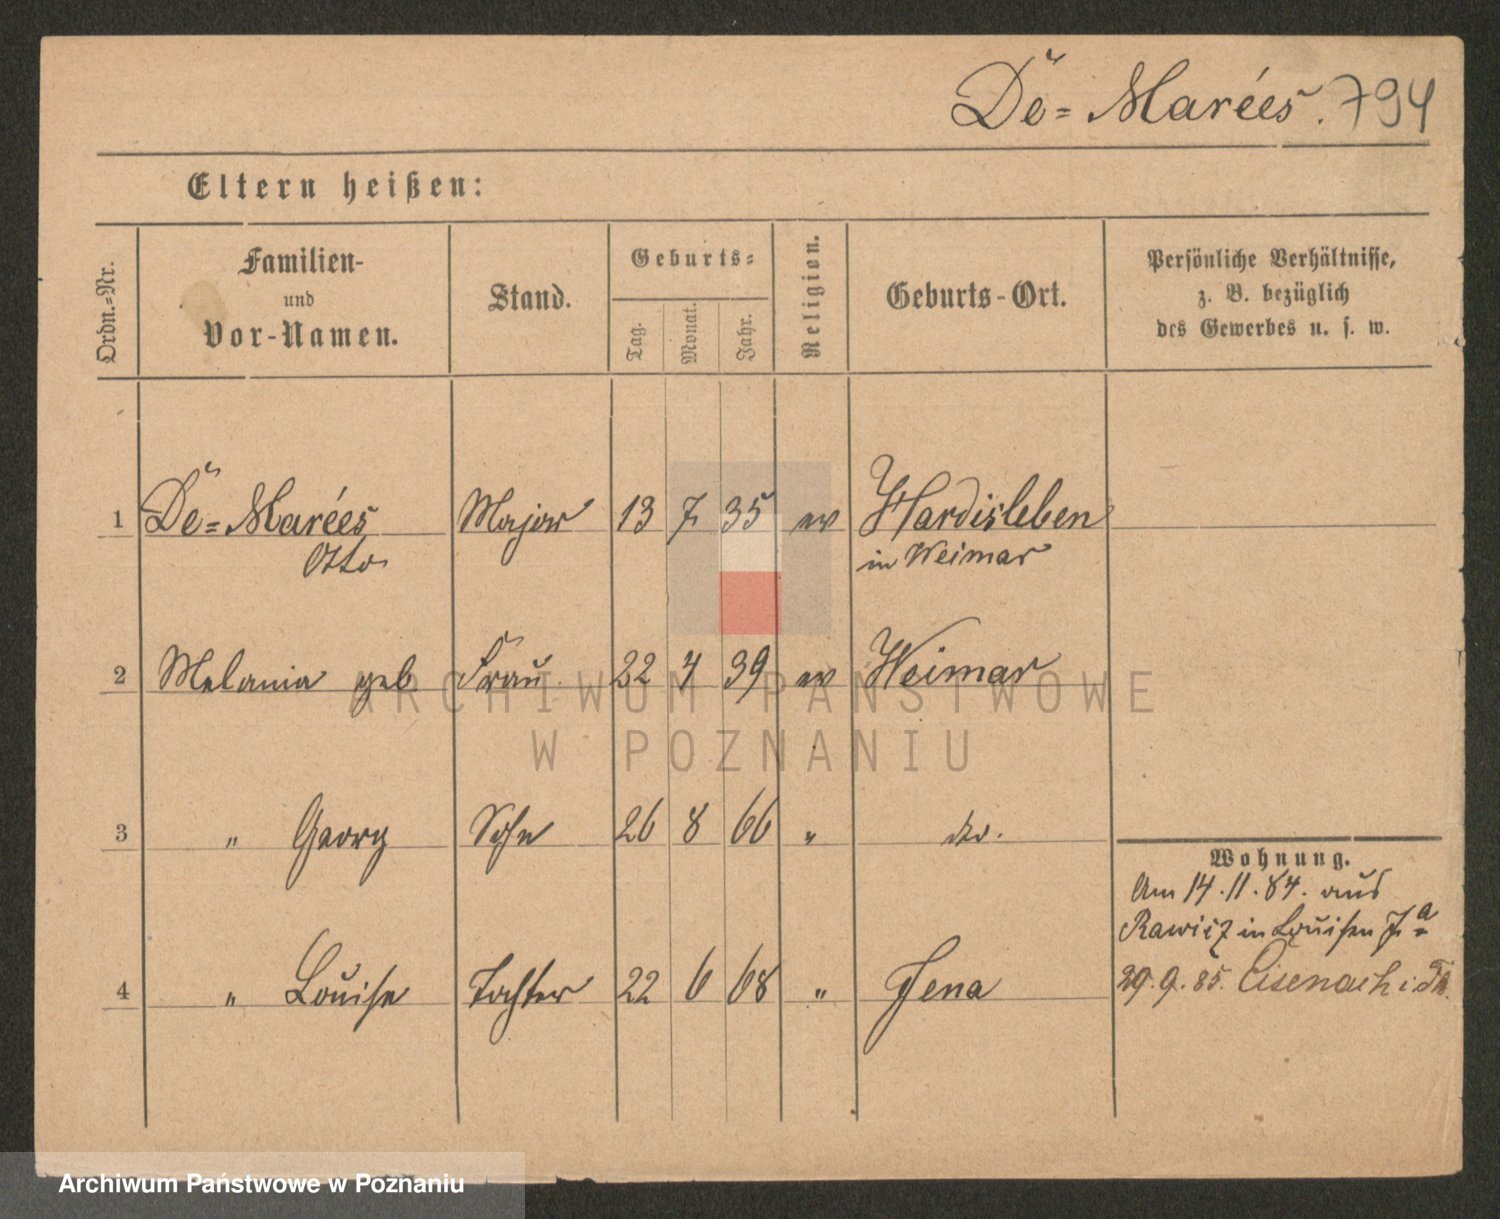 De=Marées. 794
Eltern heißen:
Ordn.=Nr.
Familien-
und
Vor-Namen.
Stand.
Geburts=
Tag.
Monat.
Jahr.
Religion.
Geburts-Ort.
Persönliche Verhältnisse,
z. B. bezüglich
des Gewerbes u. s. w.
1 De=Marées Major 13 7 35 ev Hardisleben
Otto in Weimar
2 Melania geb Frau 22 4 39 ev Weimar
ARCHIWUM PAŃSTWOWE
W POZNANIU
3 " Georg Sohn 26 8 66 " do.
Wohnung.
Am 14.11.84. aus
Rawicz in Louisen
4 " Louise Tochter 22 6 68 " Jena
29.9.85. Eisenach i.
Archiwum Państwowe w Poznaniu